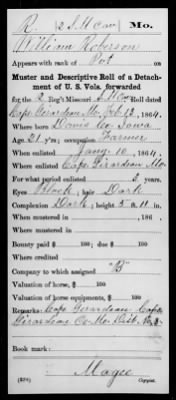 R. 2 S M Cav Mo.
William Roberson
Appears with rank of Pvt on
Muster and Descriptive Roll of a Detach-
ment of U. S. Vols. forwarded
for the 2 Reg't Missouri S M Cav Roll dated
Cape Girardeau Mo Feb 13, 1864.
Where born Davis Co. Iowa
Age 21 y'rs; occupation Farmer
When enlisted Jany. 10, 1864.
Where enlisted Cape Girardeau Mo
For what period enlisted 3 years.
Eyes Black; hair Dark
Complexion Dark; height 5 ft. 11 in.
When mustered in , 186 .
Where mustered in
Bounty paid $ 100; due $ 100
Where credited
Company to which assigned "B"
Valuation of horse, $ 100
Valuation of horse equipments, $ 100
Remarks: Cape Girardeau, Cape
Girardeau Co. Mo.
Book mark:
Magee
Copyist.